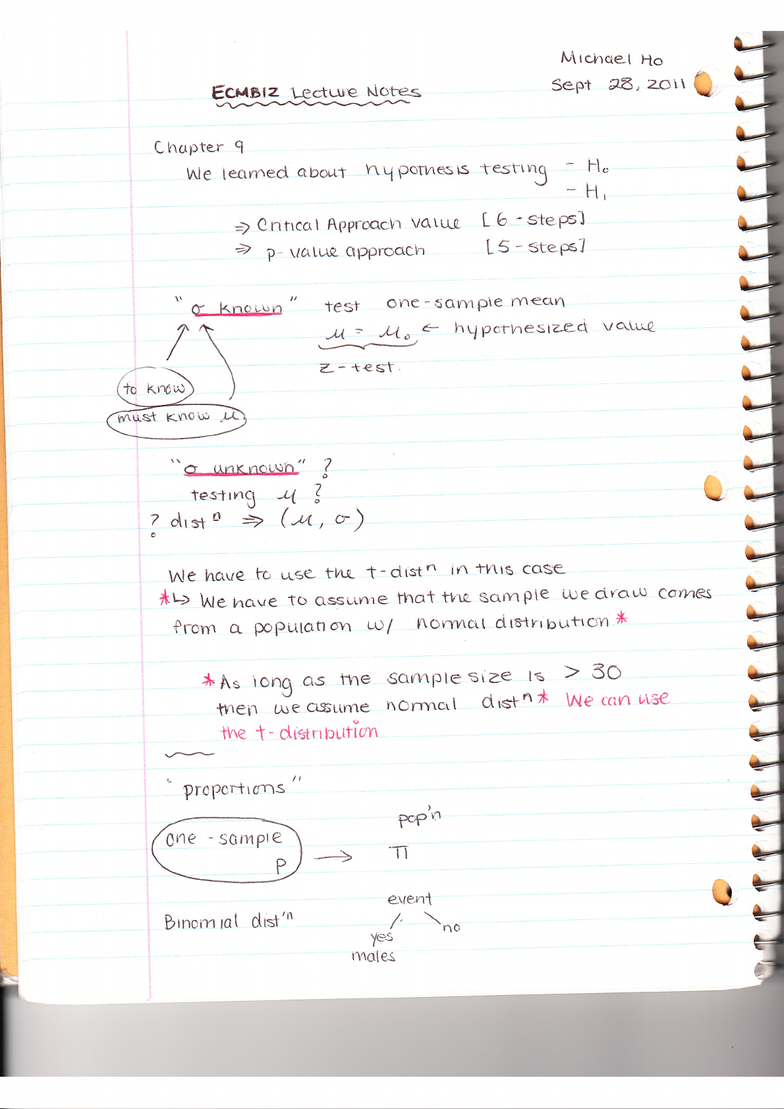 Michael Ho
Sept 28, 2011
ECMB12 Lecture Notes
Chapter 9
We learned about hypothesis testing - H₀
- H₁
⇒ Critical Approach value [6-steps]
⇒ p-value approach [5-steps]
"σ known" test one-sample mean
μ = μ₀ ← hypothesized value
z-test.
to know
must know μ
"σ unknown" ?
testing μ ?
? distⁿ ⇒ (μ, σ)
We have to use the t-distⁿ in this case
*↳ We have to assume that the sample we draw comes
from a population w/ normal distribution *
*As long as the sample size is > 30
then we assume normal distⁿ* We can use
the t-distribution
"proportions"
pop'n
one-sample
p → π
event
Binomial dist'ⁿ
yes no
males